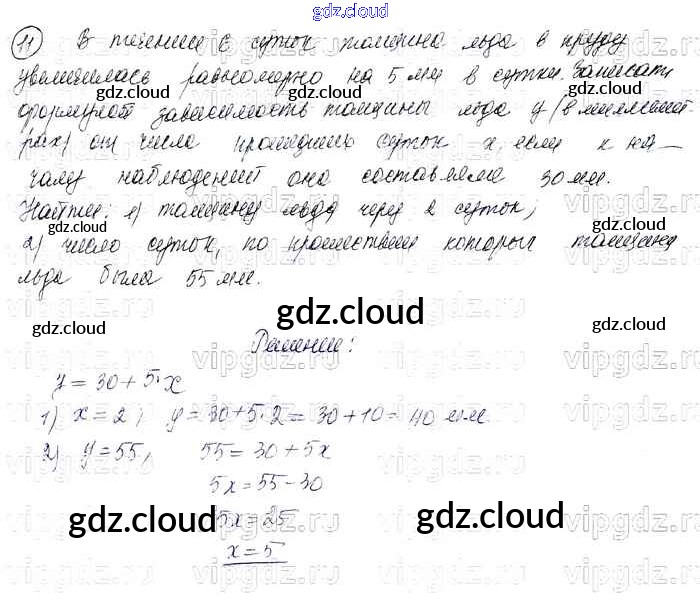 gdz.cloud
11 В течении 6 суток толщина льда в пруду
увеличилась равномерно на 5 мм в сутки. Записать
формулой зависимость толщины льда y (в миллимет-
рах) от числа прошедших суток x, если к на-
чалу наблюдений она составляла 30 мм.
Найти: 1) толщину льда через 2 суток;
2) число суток, по прошествии которых толщина
льда была 55 мм.
gdz.cloud gdz.cloud gdz.cloud
Решение:
y = 30 + 5·x
1) x = 2; y = 30 + 5·2 = 30 + 10 = 40 мм.
2) y = 55, 55 = 30 + 5x
5x = 55 - 30
5x = 25
x = 5
gdz.cloud
gdz.cloud
gdz.cloud
gdz.cloud
vipgdz.ru